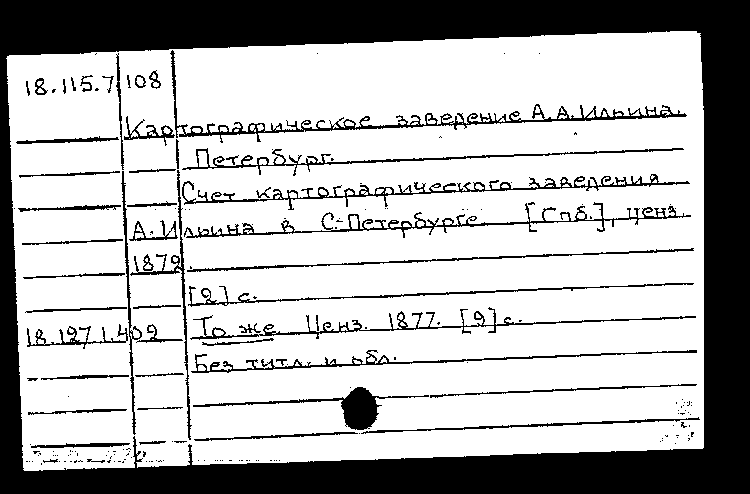 18.115.7.108
Картографическое заведение А.А.Ильина.
Петербург.
Счет картографического заведения
А.Ильина в С-Петербурге [Спб.], ценз.
1872.
[2] с.
18.127.1.402 То же Ценз. 1877. [2] с.
Без титл. и обл.